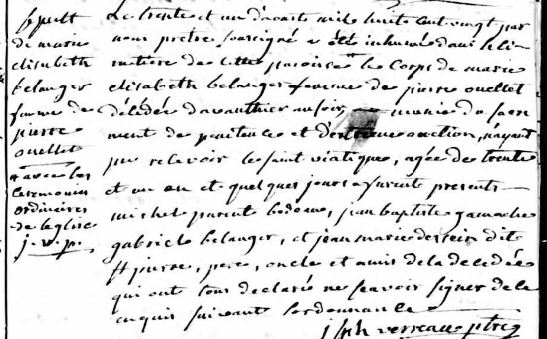 Sepult
de marie
elisabeth
belanger
femme de
pierre
ouellet
# avec les
ceremonies
ordinaires
de leglise
j. v. p.
Le trente et un daouts mile huit cent vingt par
nous pretre soussigné a été inhumé dans le ci-
metiere de cette paroisse # le Corps de marie
elisabeth belanger femme de pierre ouellet
décédée davanthier au soir, munie du sacre
ment de penitence et d'extreme onction, n'ayant
pu relevoir le saint viatique, agée de trente
et un an et quelques jours, furent presents
michel parent bedeau, jean baptiste gamache
gabriel belanger, et jean marie dessein dit
st pierre, pere, oncle et amis de la decedée
qui ont tous declaré ne scavoir signer de le
enquis suivant lordonnance
jsph verreau ptre